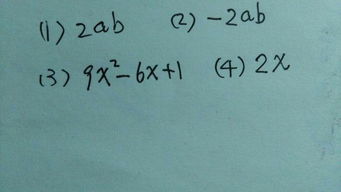 (1) 2ab (2) -2ab
(3) 9x²-6x+1 (4) 2x